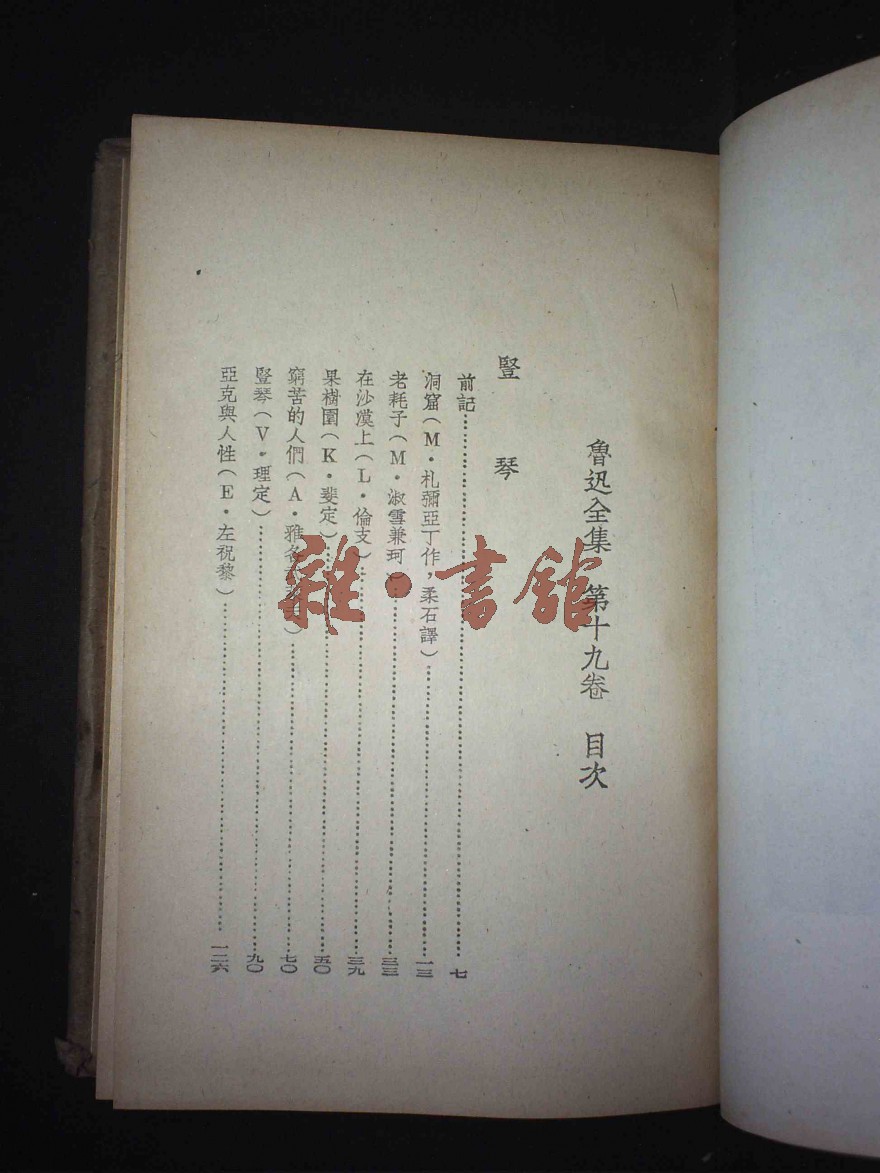 魯迅全集 第十九卷 目次
豎琴
前記……七
洞窟（M·札彌亞丁作，柔石譯）……一三
老耗子（M·淑雪兼珂）……三三
在沙漠上（L·倫支）……三九
果樹園（K·斐定）……五〇
窮苦的人們（A·雅各……）……七〇
豎琴（V·理定）……九〇
亞克與人性（E·左祝黎）……一二六
雜·書館